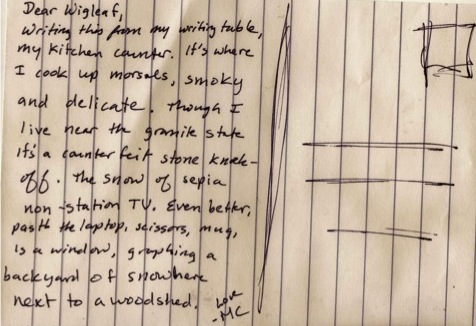 Dear Wigleaf,
Writing this from my writing table,
my kitchen counter. It's where
I cook up morsels, smoky
and delicate. Though I
live near the granite state
it's a counterfeit stone knock-
off. The snow of sepia
non-station TV. Even better,
past the laptop, scissors, mug,
is a window, graphing a
backyard of snowhere
next to a woodshed.
Love
-MC